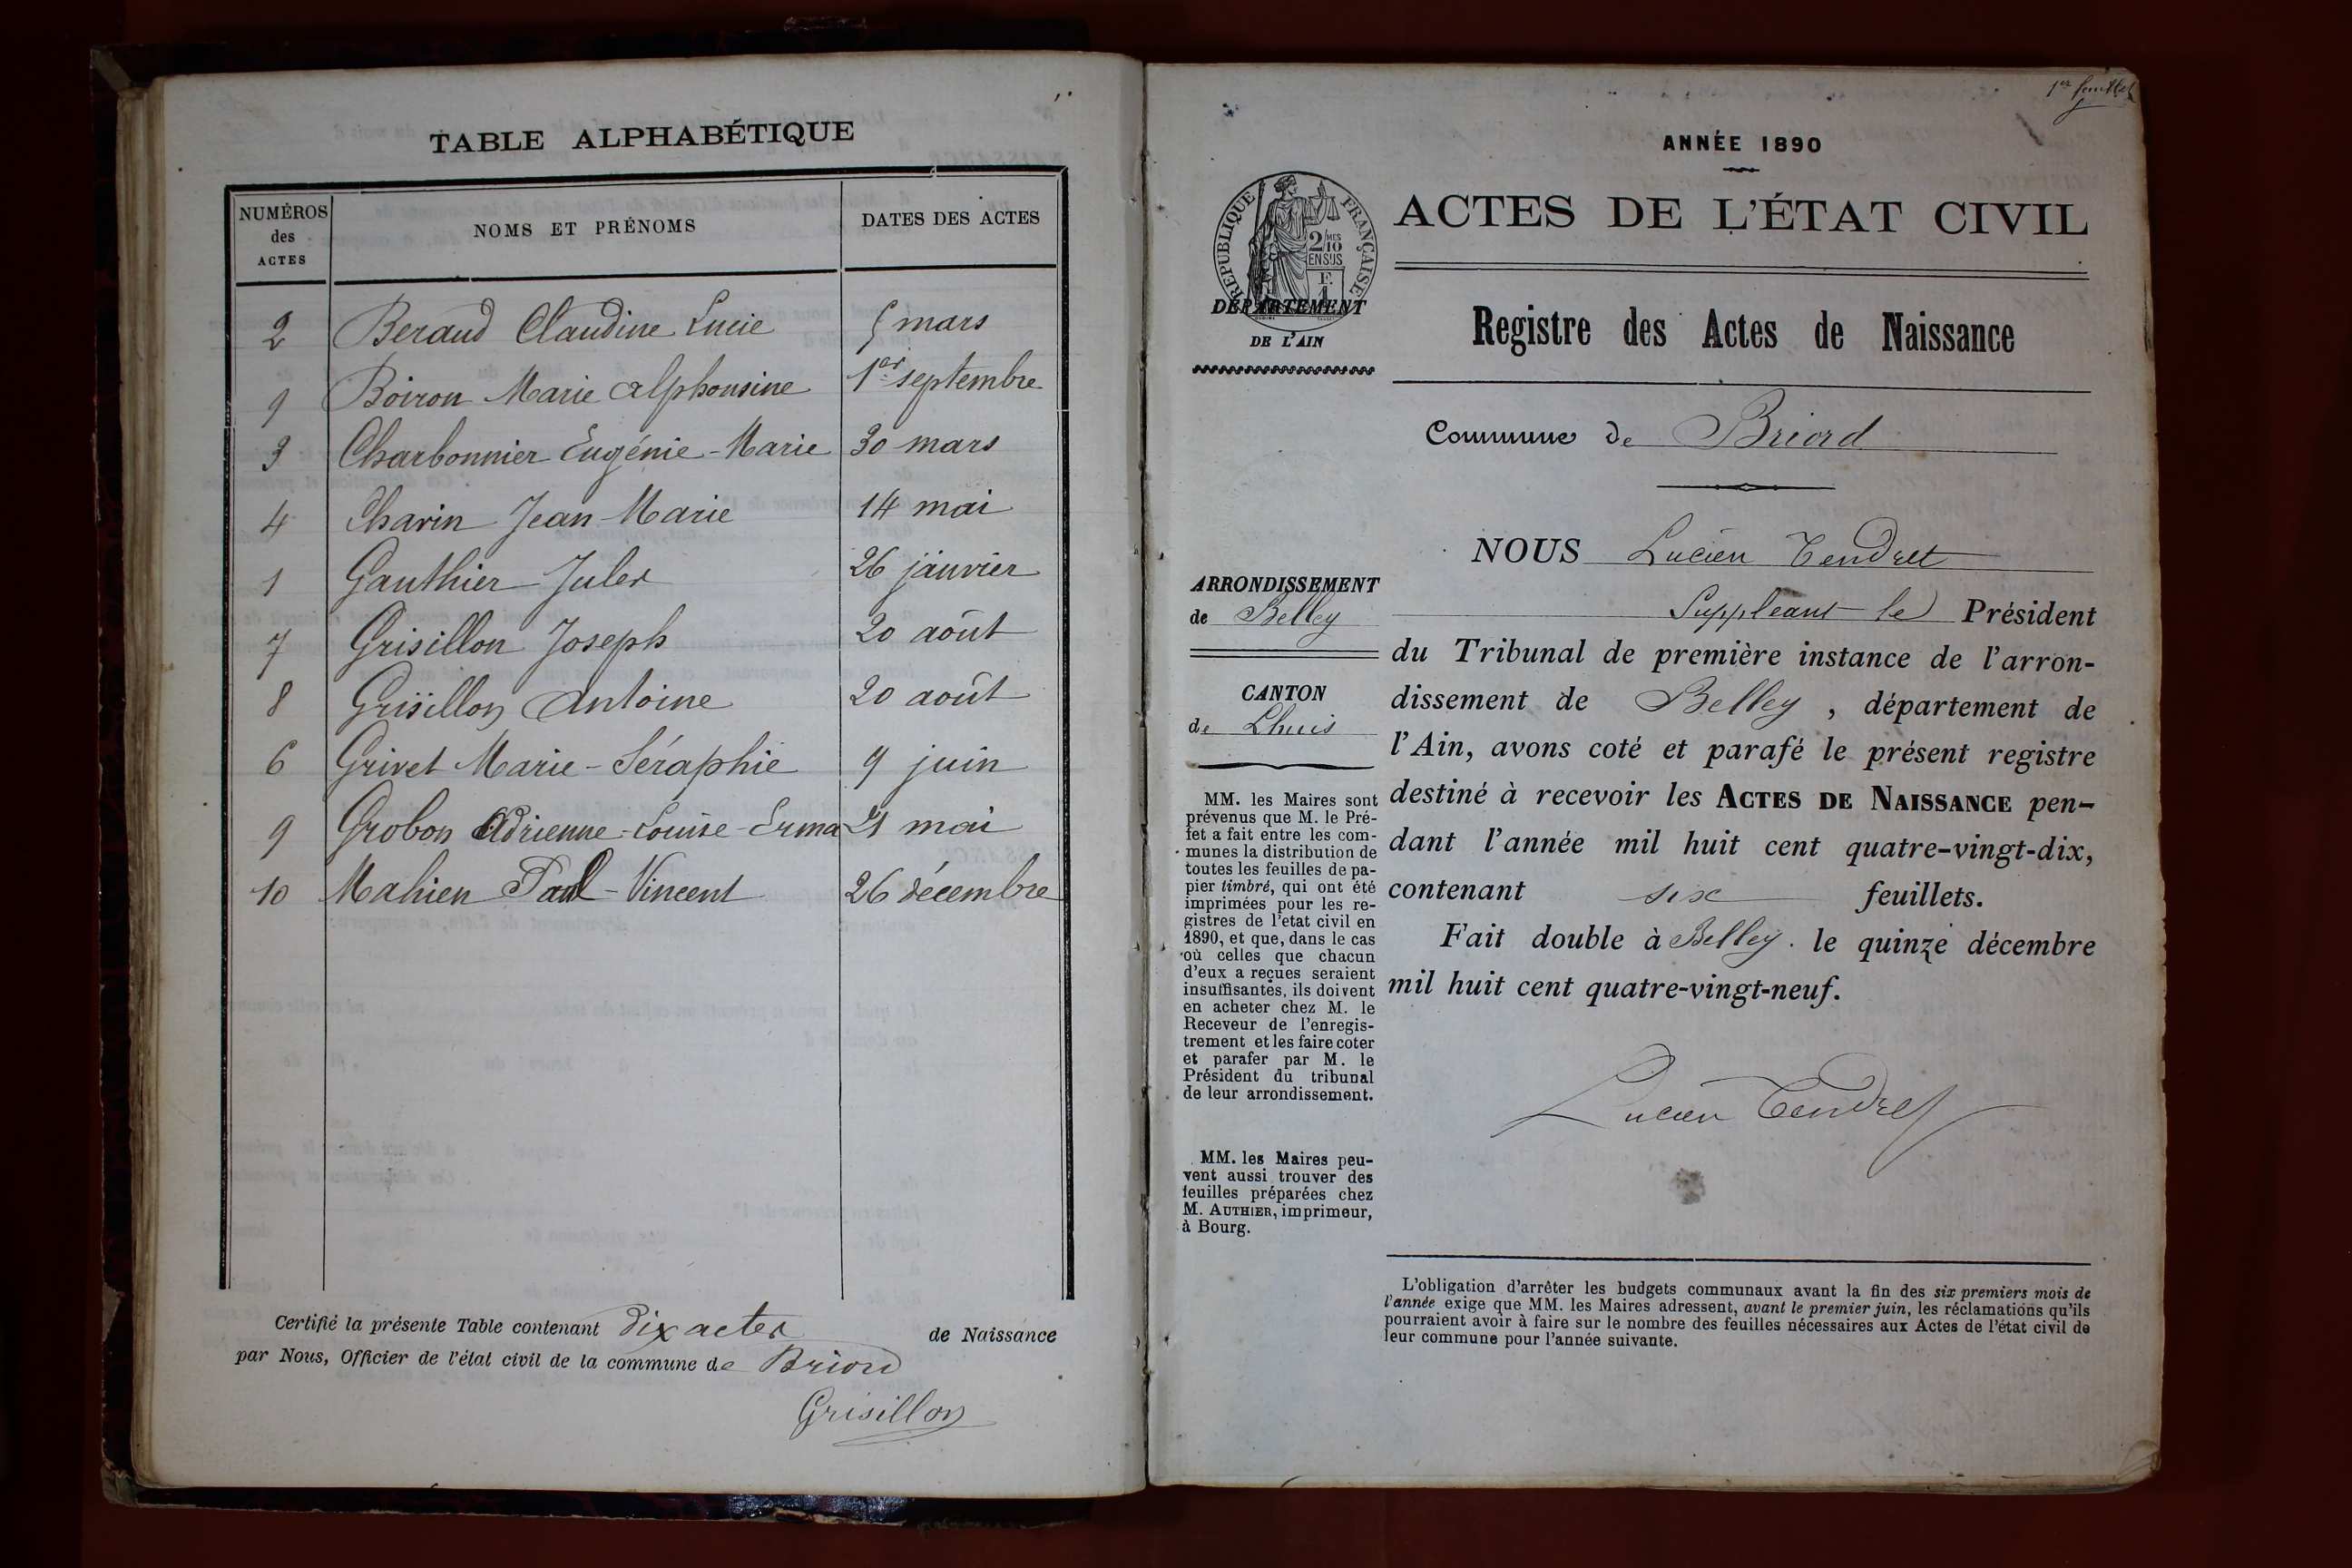 TABLE ALPHABÉTIQUE
NUMÉROS des ACTES
NOMS ET PRÉNOMS
DATES DES ACTES
2 Beraud Claudine Lucie 5 mars
9 Boiron Marie Alphonsine 1er septembre
3 Charbonnier Eugénie-Marie 30 mars
4 Charin Jean-Marie 14 mai
1 Gauthier Jules 26 janvier
7 Grisillon Joseph 20 août
8 Grisillon Antoine 20 août
6 Grivet Marie-Séraphie 9 juin
9 Grobon Adrienne-Louise-Erma 21 mai
10 Mahien Paul-Vincent 26 décembre
Certifié la présente Table contenant dix actes de Naissance
par Nous, Officier de l'état civil de la commune de Briord
Grisillon
1er feuillet
ANNÉE 1890
RÉPUBLIQUE FRANÇAISE
2/10
EN SUS
DÉPARTEMENT
DE L'AIN
ACTES DE L'ÉTAT CIVIL
Registre des Actes de Naissance
Commune de Briord
ARRONDISSEMENT
de Belley
CANTON
de Lhuis
MM. les Maires sont
prévenus que M. le Pré-
fet a fait entre les com-
munes la distribution de
toutes les feuilles de pa-
pier timbré, qui ont été
imprimées pour les re-
gistres de l'etat civil en
1890, et que, dans le cas
où celles que chacun
d'eux a reçues seraient
insuffisantes, ils doivent
en acheter chez M. le
Receveur de l'enregis-
trement et les faire coter
et parafer par M. le
Président du tribunal
de leur arrondissement.
MM. les Maires peu-
vent aussi trouver des
feuilles préparées chez
M. AUTHIER, imprimeur,
à Bourg.
NOUS Lucien Tendret
Suppléant le Président
du Tribunal de première instance de l'arron-
dissement de Belley, département de
l'Ain, avons coté et parafé le présent registre
destiné à recevoir les ACTES DE NAISSANCE pen-
dant l'année mil huit cent quatre-vingt-dix,
contenant six feuillets.
Fait double à Belley. le quinze décembre
mil huit cent quatre-vingt-neuf.
Lucien Tendret
L'obligation d'arrêter les budgets communaux avant la fin des six premiers mois de
l'année exige que MM. les Maires adressent, avant le premier juin, les réclamations qu'ils
pourraient avoir à faire sur le nombre des feuilles nécessaires aux Actes de l'état civil de
leur commune pour l'année suivante.